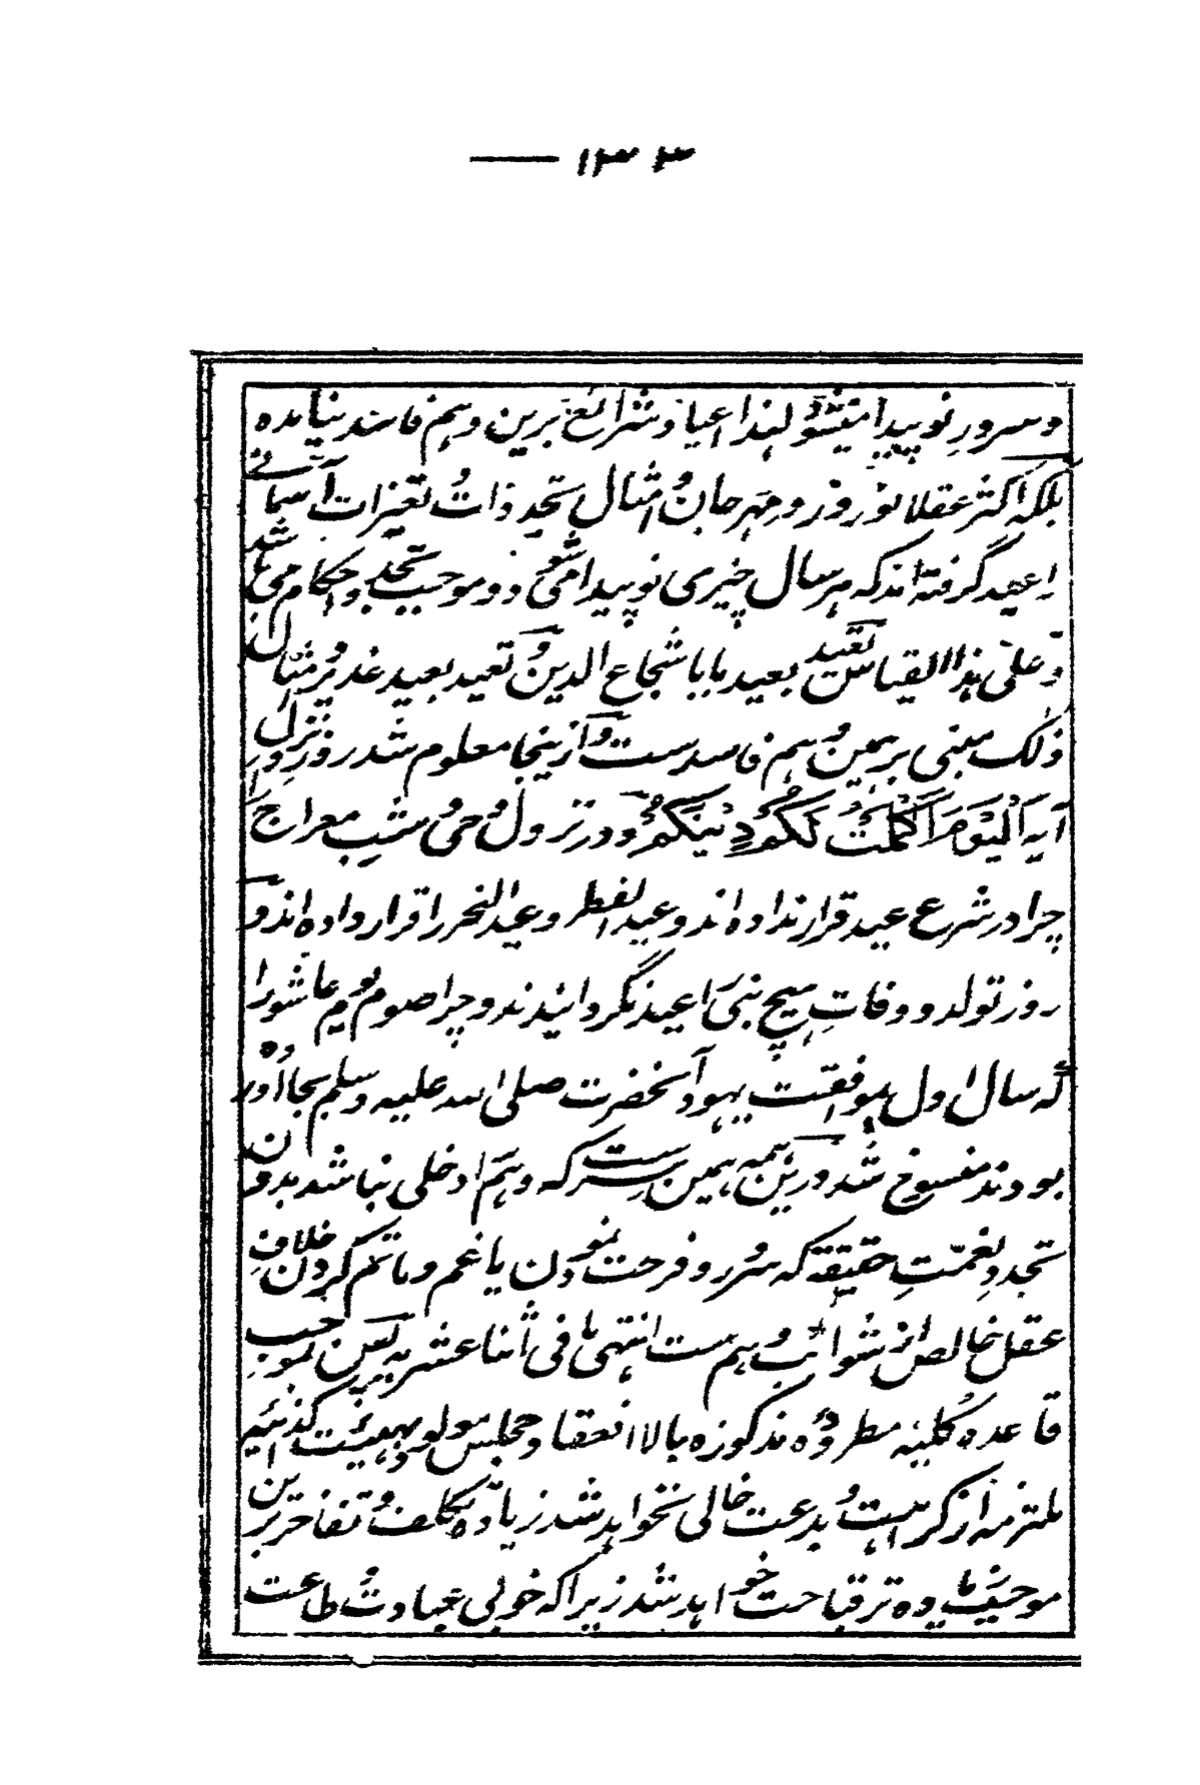 ۱۳۳
و سرور نو پیدا میشود لهذا اعیاد شرائع برین وهم فاسد بنیاده
بلکه اکثر عقلا نوروز و مهرجان و امثال تجدد ذات تغیرات آسمانی
را عید گرفته اند که هر سال چیزی نو پیدا می شود و موجب تجدد احکام می باشد
و علی هذا القیاس تعید بعید بابا شجاع الدین و تعید بعید غدیر و امثال
ذلک مبنی بر همین وهم فاسدست و ازینجا معلوم شد روز نزول
آیه الیوم اکملت لکم دینکم و در نزول وحی و شب معراج را
چرا در شرع عید قرار نداده اند و عید الفطر و عید النحر را قرار داده اند و
روز تولد و وفات هیچ نبی را عید نگردانیدند و چرا صوم یوم عاشورا
که سال اول بموافقت یهود آنحضرت صلی الله علیه وسلم بجا آورده
بودند منسوخ شد درین همه همین سرست که وهم را دخلی نباشد بدون
تجدد نعمت حقیقة که سرور و فرحت نمودن یا غم و ماتم کردن خلاف
عقل خالص از شوائب وهم ست انتهی ما فی اثنا عشریه پس بموجب
قاعده کلیه مطروده مذکوره بالا انعقاد مجلس مولود بهیئت کذائیه
ملتزمه از کراهت و بدعت خالی نخواهد شد زیاده تکلف و تفاخر برین
موجب زیاده تر قباحت خواهد شد زیرا که خوبی عبادت و طاعت